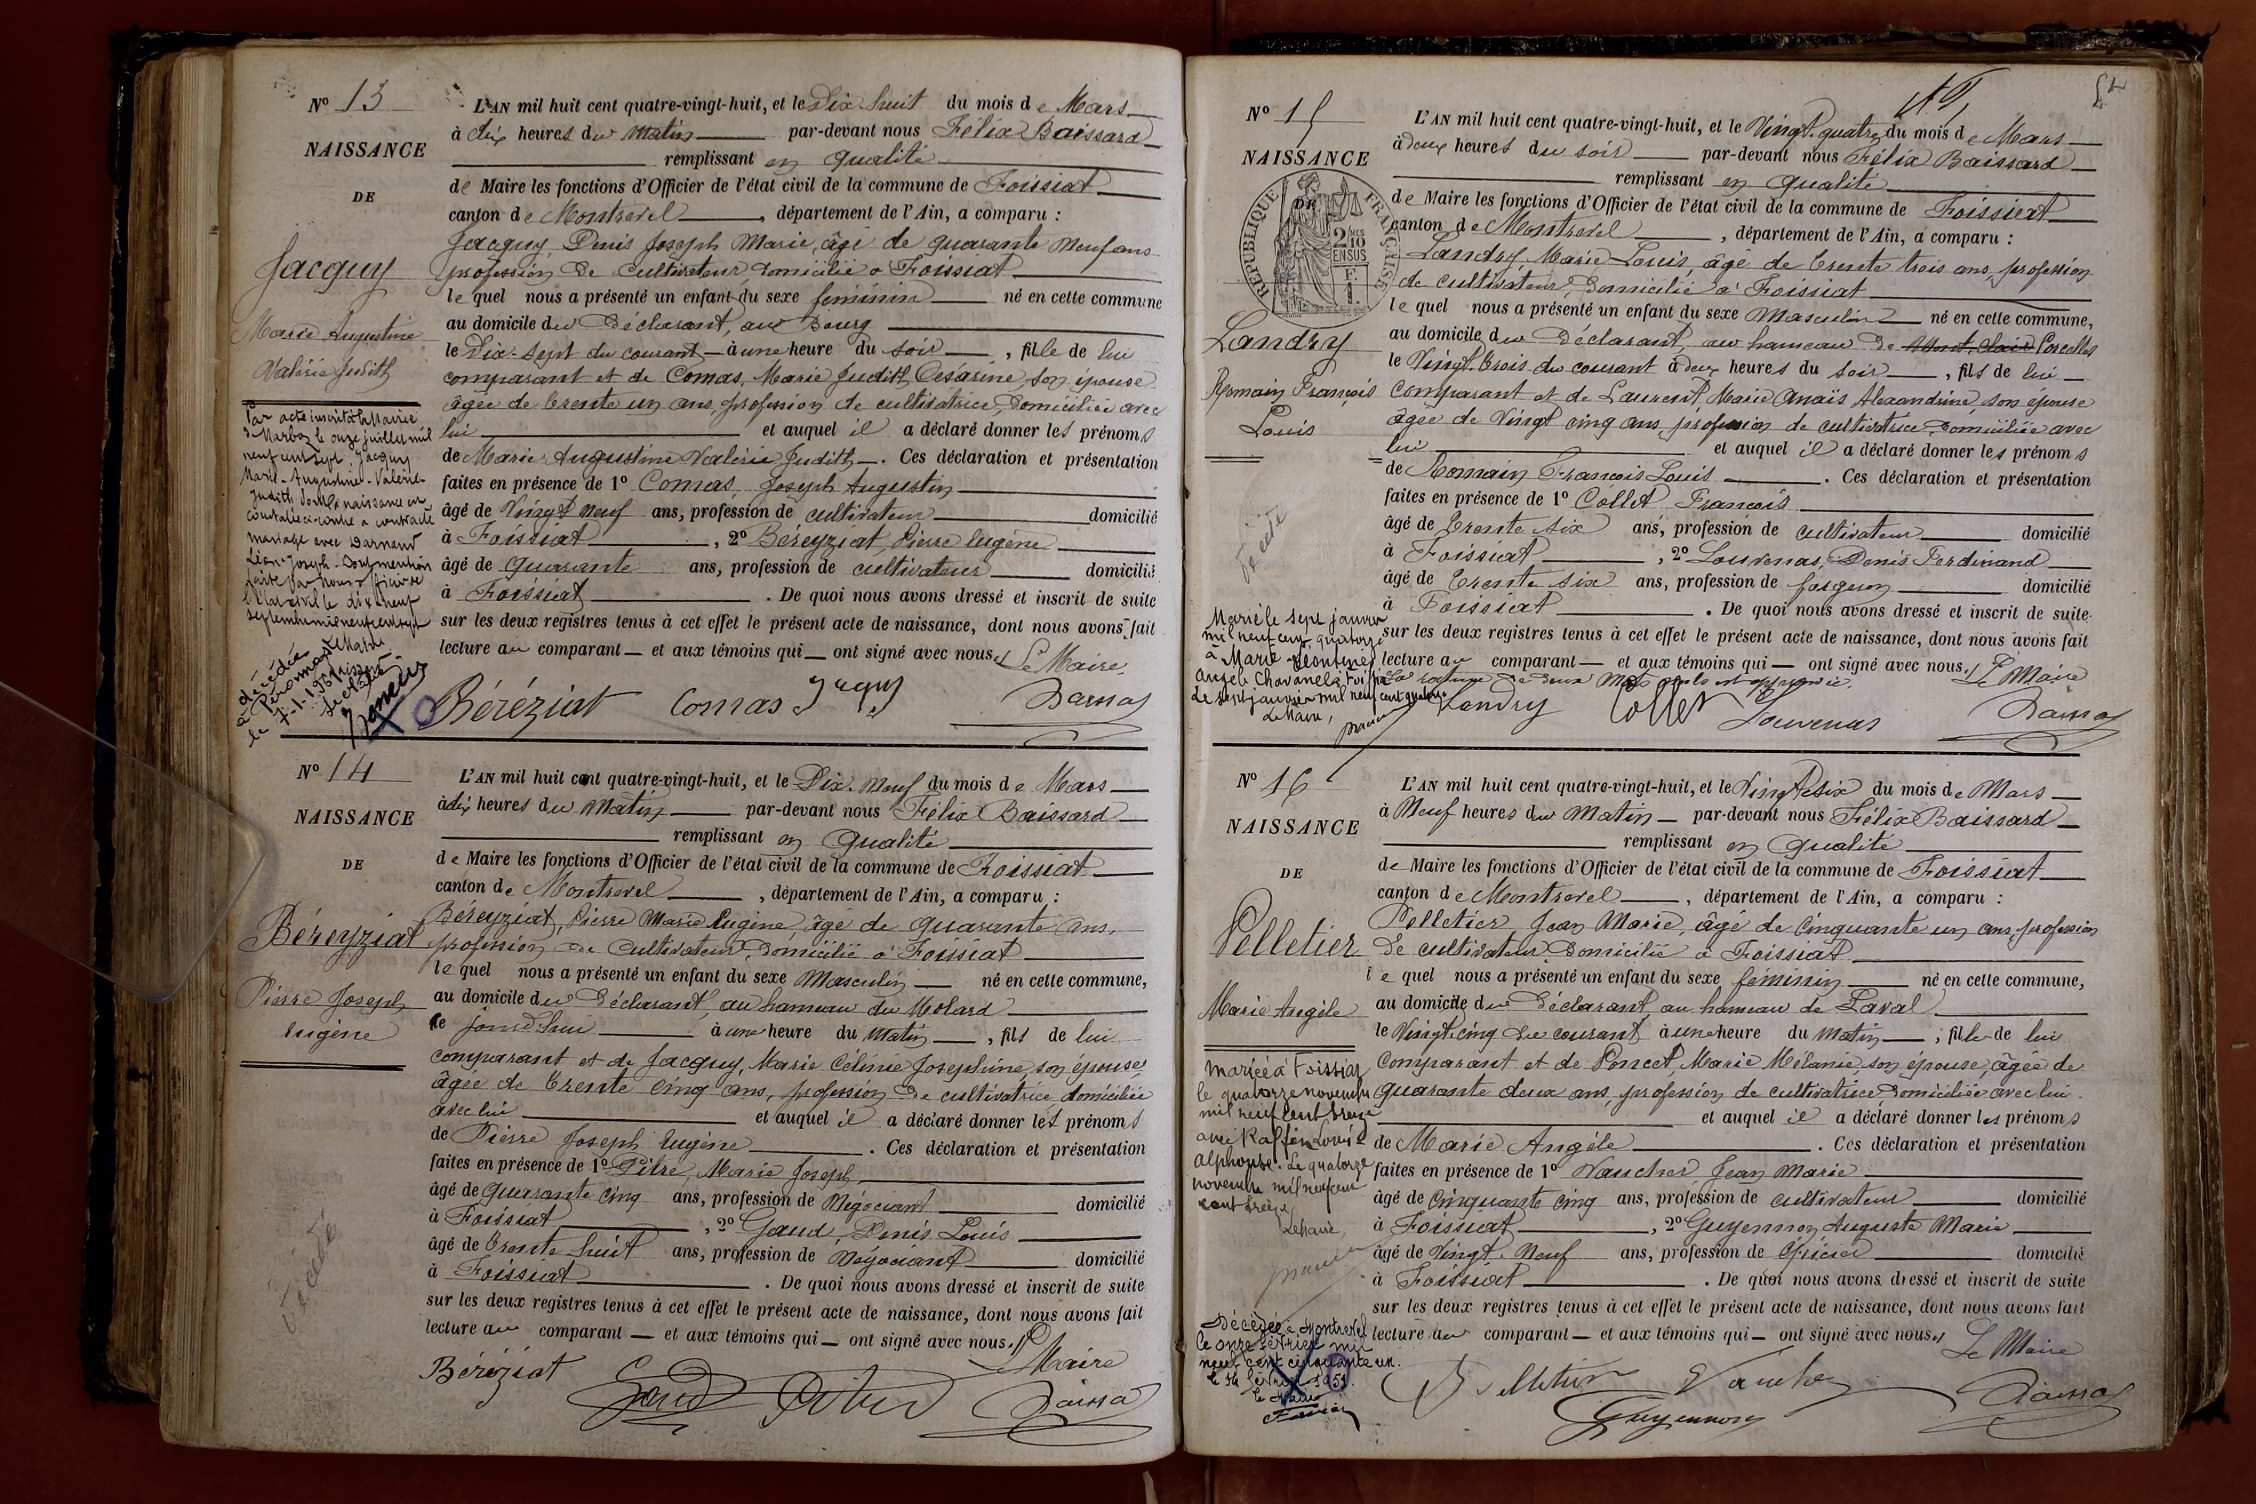 Nº 13
NAISSANCE
DE
Jacquy
Marie Augustine
Valérie Judith
Par acte inscrit à la Mairie
de Marboz le onze juillet mil
neuf cent sept Jacquy
Marie-Augustine-Valérie-
Judith dont la naissance est
constatée ci-contre a contracté
mariage avec Darnand
Léon-Joseph. Dont mention
faite par nous officier de
l'état civil le dix neuf
septembre mil neuf cent sept
décédée
à Péronnas
le 7-1-1961
L'AN mil huit cent quatre-vingt-huit, et le Dix huit du mois de Mars
à dix heures du Matin par-devant nous Félix Baissard
remplissant en qualité
de Maire les fonctions d'Officier de l'état civil de la commune de Foissiat
canton de Montrevel, département de l'Ain, a comparu :
Jacquy Denis Joseph Marie, âgé de quarante neuf ans
profession de cultivateur, domicilié à Foissiat
lequel nous a présenté un enfant du sexe féminin né en cette commune
au domicile du déclarant, au Bourg
le Dix-sept du courant à une heure du soir, fille de lui
comparant et de Comas, Marie Judith Césarine, son épouse
âgée de trente un ans, profession de cultivatrice, domiciliée avec
lui et auquel il a déclaré donner les prénoms
de Marie Augustine Valérie Judith. Ces déclaration et présentation
faites en présence de 1º Comas, Joseph Augustin
âgé de Vingt neuf ans, profession de cultivateur domicilié
à Foissiat, 2º Béreyziat, Pierre Eugène
âgé de quarante ans, profession de cultivateur domicilié
à Foissiat. De quoi nous avons dressé et inscrit de suite
sur les deux registres tenus à cet effet le présent acte de naissance, dont nous avons fait
lecture au comparant et aux témoins qui ont signé avec nous. Le Maire,
Béréziat Comas Jacquy
Nº 14
NAISSANCE
DE
Béreyziat
Pierre Joseph
Eugène
L'AN mil huit cent quatre-vingt-huit, et le Dix-neuf du mois de Mars
à dix heures du Matin par-devant nous Félix Baissard
remplissant en qualité
de Maire les fonctions d'Officier de l'état civil de la commune de Foissiat
canton de Montrevel, département de l'Ain, a comparu :
Béreyziat, Pierre Marie Eugène, âgé de quarante ans,
profession de cultivateur, domicilié à Foissiat
lequel nous a présenté un enfant du sexe Masculin né en cette commune,
au domicile du déclarant, au hameau du Molard
le jourd'hui à une heure du Matin, fils de lui
comparant et de Jacquy, Marie Célinie Joséphine, son épouse
âgée de trente cinq ans, profession de cultivatrice, domiciliée
avec lui et auquel il a déclaré donner les prénoms
de Pierre Joseph Eugène. Ces déclaration et présentation
faites en présence de 1º Pitre, Marie Joseph,
âgé de quarante cinq ans, profession de Négociant domicilié
à Foissiat, 2º Gaud, Denis Louis
âgé de trente huit ans, profession de Négociant domicilié
à Foissiat. De quoi nous avons dressé et inscrit de suite
sur les deux registres tenus à cet effet le présent acte de naissance, dont nous avons fait
lecture au comparant et aux témoins qui ont signé avec nous. Le Maire
Béréziat Gaud Pitre
Nº 15
NAISSANCE
DE
RÉPUBLIQUE FRANÇAISE
2 10MES
EN SUS
Landry
Romain François
Louis
Marié le sept janvier
mil neuf cent quatorze
à Marie Léontine
Angele Chavanel à Foissiat
Le sept janvier mil neuf cent quatorze
Le Maire,
L'AN mil huit cent quatre-vingt-huit, et le Vingt-quatre du mois de Mars
à deux heures du soir par-devant nous Félix Baissard
remplissant en qualité
de Maire les fonctions d'Officier de l'état civil de la commune de Foissiat
canton de Montrevel, département de l'Ain, a comparu :
Landry, Marie Louis, âgé de trente trois ans, profession
de cultivateur, domicilié à Foissiat
lequel nous a présenté un enfant du sexe Masculin né en cette commune,
au domicile du déclarant, au hameau de Mont-clair Corcelles
le Vingt trois du courant à deux heures du soir, fils de lui
comparant et de Laurent Marie Anaïs Alexandrine, son épouse
âgée de Vingt cinq ans, profession de cultivatrice, domiciliée avec
lui et auquel il a déclaré donner les prénoms
de Romain François Louis. Ces déclaration et présentation
faites en présence de 1º Collet François
âgé de trente six ans, profession de cultivateur domicilié
à Foissiat, 2º Louvenas, Denis Ferdinand
âgé de trente six ans, profession de forgeron domicilié
à Foissiat. De quoi nous avons dressé et inscrit de suite
sur les deux registres tenus à cet effet le présent acte de naissance, dont nous avons fait
lecture au comparant et aux témoins qui ont signé avec nous. Le Maire
La rature de deux mots nuls est approuvée.
Landry Collet Louvenas
Nº 16
NAISSANCE
DE
Pelletier
Marie Angèle
mariée à Foissiat
le quatorze novembre
mil neuf cent treize
avec Raffin Louis
Alphonse. Le quatorze
novembre mil neuf cent
cent treize
Le Maire,
Décédée à Montrevel
le onze février mil
neuf cent cinquante un.
le 14 février 1951.
le Maire
L'AN mil huit cent quatre-vingt-huit, et le Vingt six du mois de Mars
à Neuf heures du Matin par-devant nous Félix Baissard
remplissant en qualité
de Maire les fonctions d'Officier de l'état civil de la commune de Foissiat
canton de Montrevel, département de l'Ain, a comparu :
Pelletier Jean Marie, âgé de cinquante un ans, profession
de cultivateur, domicilié à Foissiat
lequel nous a présenté un enfant du sexe féminin né en cette commune,
au domicile du déclarant, au hameau de Laval
le Vingt-cinq du courant à une heure du Matin, fille de lui
comparant et de Poncet, Marie Mélanie, son épouse, âgée de
quarante deux ans, profession de cultivatrice, domiciliée avec lui
et auquel il a déclaré donner les prénoms
de Marie Angèle. Ces déclaration et présentation
faites en présence de 1º Vaucher Jean Marie
âgé de cinquante cinq ans, profession de cultivateur domicilié
à Foissiat, 2º Guyennon Auguste Marie
âgé de Vingt-Neuf ans, profession de épicier domicilié
à Foissiat. De quoi nous avons dressé et inscrit de suite
sur les deux registres tenus à cet effet le présent acte de naissance, dont nous avons fait
lecture au comparant et aux témoins qui ont signé avec nous. Le Maire
Pelletier Vaucher
Guyennon